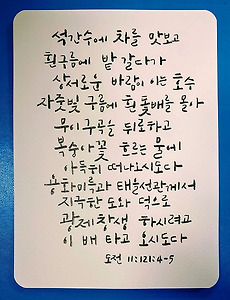 석간수에 차를 맛보고
흰구름에 밭 갈다가
상서로운 바람이 이는 호수
자춧빛 구름에 흰 돛배를 몰아
무이구곡을 뒤로하고
복숭아꽃 흐르는 물에
아득히 떠나오시도다
용화미륵과 태을선관께서
지극한 도와 덕으로
광제창생 하시려고
이 배 타고 오시도다
도전 11:121:4-5